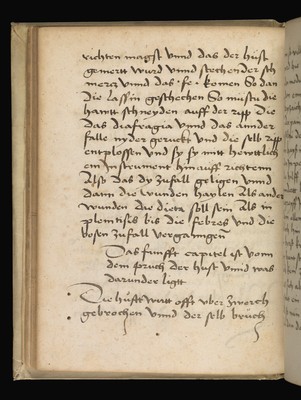 richten magst vnnd das der hust
gemert wurd vnnd stechender sch
mercz vnnd das · fe · komen So dan
die lassin geschechen So mustu die
hawtt schneyden auff der ripp die
das diafragia vnnd das annder
falle nyder geruckt vnd die selb ripp
entplossen vnd sy mit
ein Instrument hinauff richtenn
Also das dy zufall geligen vnnd
dann die wunden haylen als ander
wunden die dieta soll sein als in
plewritsis bis die febres vnd die
bosen zufall vergangen
Das funfft capitel ist vonn
dem pruch der hust vnnd was
darunder ligtt
Die hufft wirtt offt vber zwerch
gebrochen vnnd der selb bruch